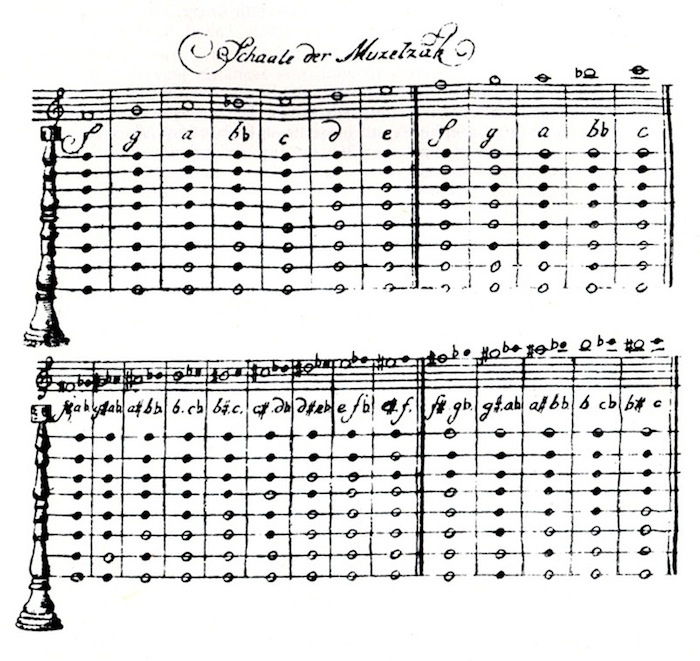 Schaale der Muzelzak
f g a bb c d e f g a bb c
a#bb b.cb b#.c. c#.db d#eb e fb f. f#gb. g#.ab a#bb b cb b# c